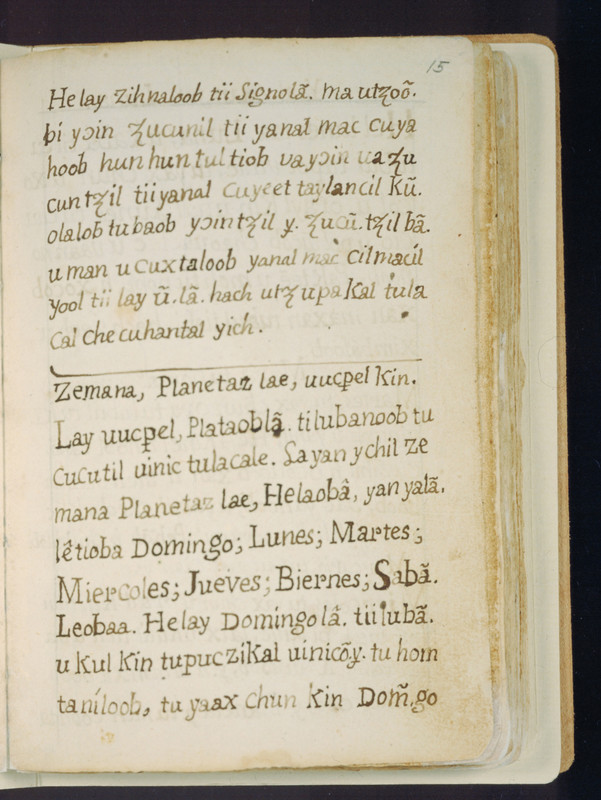 15
He lay Zihnaloob tii Signolã. ma utꜯoõ.
bi yɔin ꜯucunil tii yanal mac cuya
hoob hun hun tul tiob va yɔin va ꜯu
cuntꜯil tii yanal cuyeet taylancil Kũ.
olalob tu baob yɔintꜯil y. ꜯucũ.tꜯil bã.
u man u cuxtaloob yanal mac cilmacil
yool tii lay ũ. lã. hach utꜯ upaKal tula
Cal che cuhantal yich.
Zemana, Planetaz lae, uucpel Kin.
Lay uucpel, Plataoblã. ti lubanoob tu
Cucutil uinic tulacale. Sayan ychil Ze
mana Planetaz lae, Helaobâ, yan yalã.
lêtioba Domingo; Lunes; Martes;
Miercoles; Jueves; Biernes; Sabã.
Leobaa. He lay Domingo lâ. tii lubã.
u Kul Kin tupucziKal uinicõy. tu hom
taníloob, tu yaax chun Kin Dom̃.go